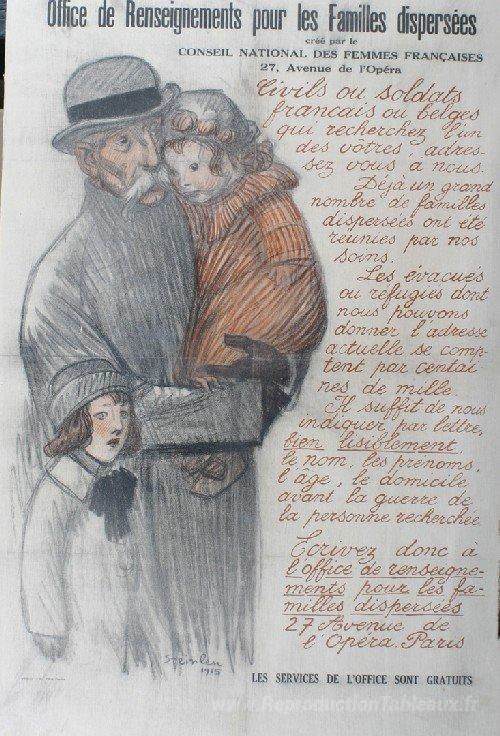 Office de Renseignements pour les Familles dispersées
créé par le
CONSEIL NATIONAL DES FEMMES FRANÇAISES
27, Avenue de l'Opéra
Civils ou soldats
francais ou belges
qui recherchez l'un
des votres, adres-
sez vous a nous.
Déjà un grand
nombre de familles
dispersées ont été
réunies par nos
soins.
Les évacués
ou réfugiés dont
nous pouvons
donner l'adresse
actuelle se comp-
tent par centai
nes de mille.
Il suffit de nous
indiquer, par lettre,
bien lisiblement,
le nom, les prénoms,
l'âge, le domicile
avant la guerre de
la personne recherchée.
Ecrivez donc à
l'office de renseigne-
ments pour les fa-
milles dispersées
27 Avenue de
l'Opéra. Paris
Steinlen
1915
LES SERVICES DE L'OFFICE SONT GRATUITS
www.ReproductionTableaux.fr